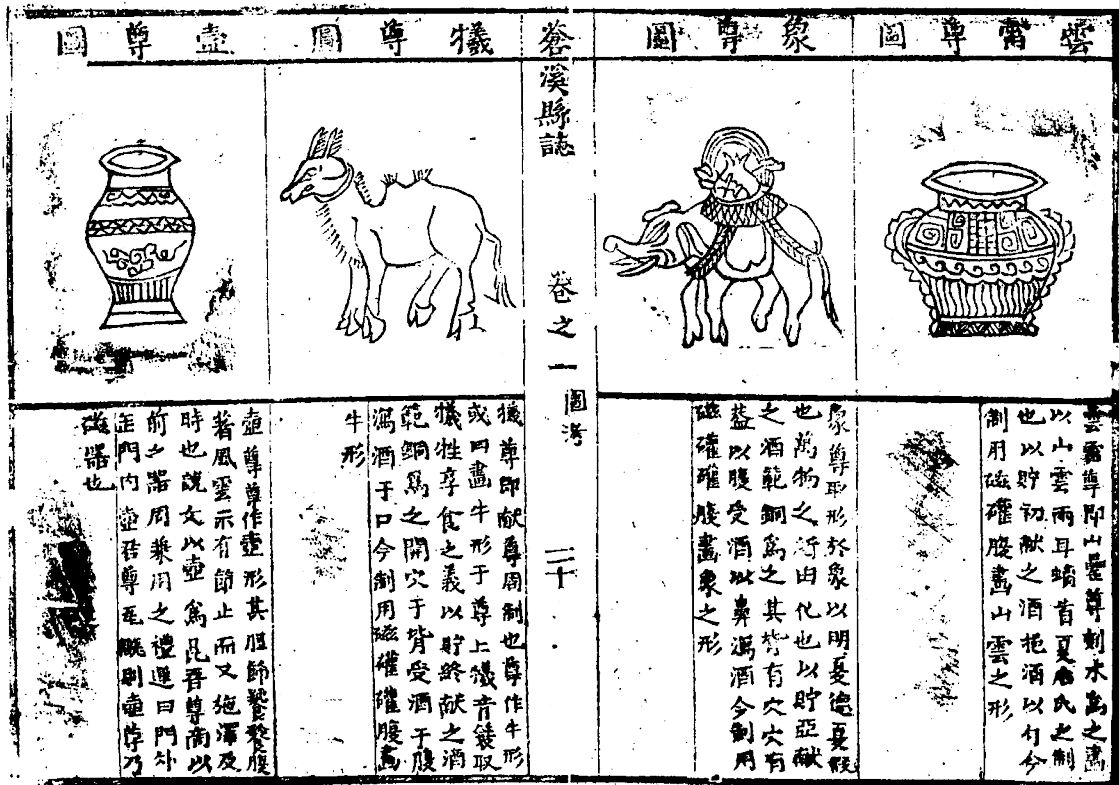 雲雷尊圖
雲雷尊即山罍尊刻木為之畫
以山雲兩耳螭首夏后氏之制
也以貯初献之酒挹酒以勺今
制用磁礶腹畵山雲之形
象尊圖
象尊取形於象以明夏德夏假
也萬物之所由化也以貯亞献
之酒範銅為之其背有穴穴有
盖以腹受酒以鼻瀉酒今制用
磁礶礶腹畵象之形
蒼溪縣誌
卷之一
圖考
二十
犠尊圖
犠尊即献尊周制也尊作牛形
或曰畫牛形于尊上犠音
犠牲享食之義以貯終献之酒
範銅為之開穴于背受酒于腹
瀉酒于口今制用磁礶礶腹畵
牛形
壺尊圖
壺尊尊作壺形其脰節饕餮腹
著風雲示有節止而又施澤及
時也說文以壺為昆吾尊商以
前之器周兼用之禮運曰門外
缶門内壺君尊瓦甒則壺尊乃
磁器也